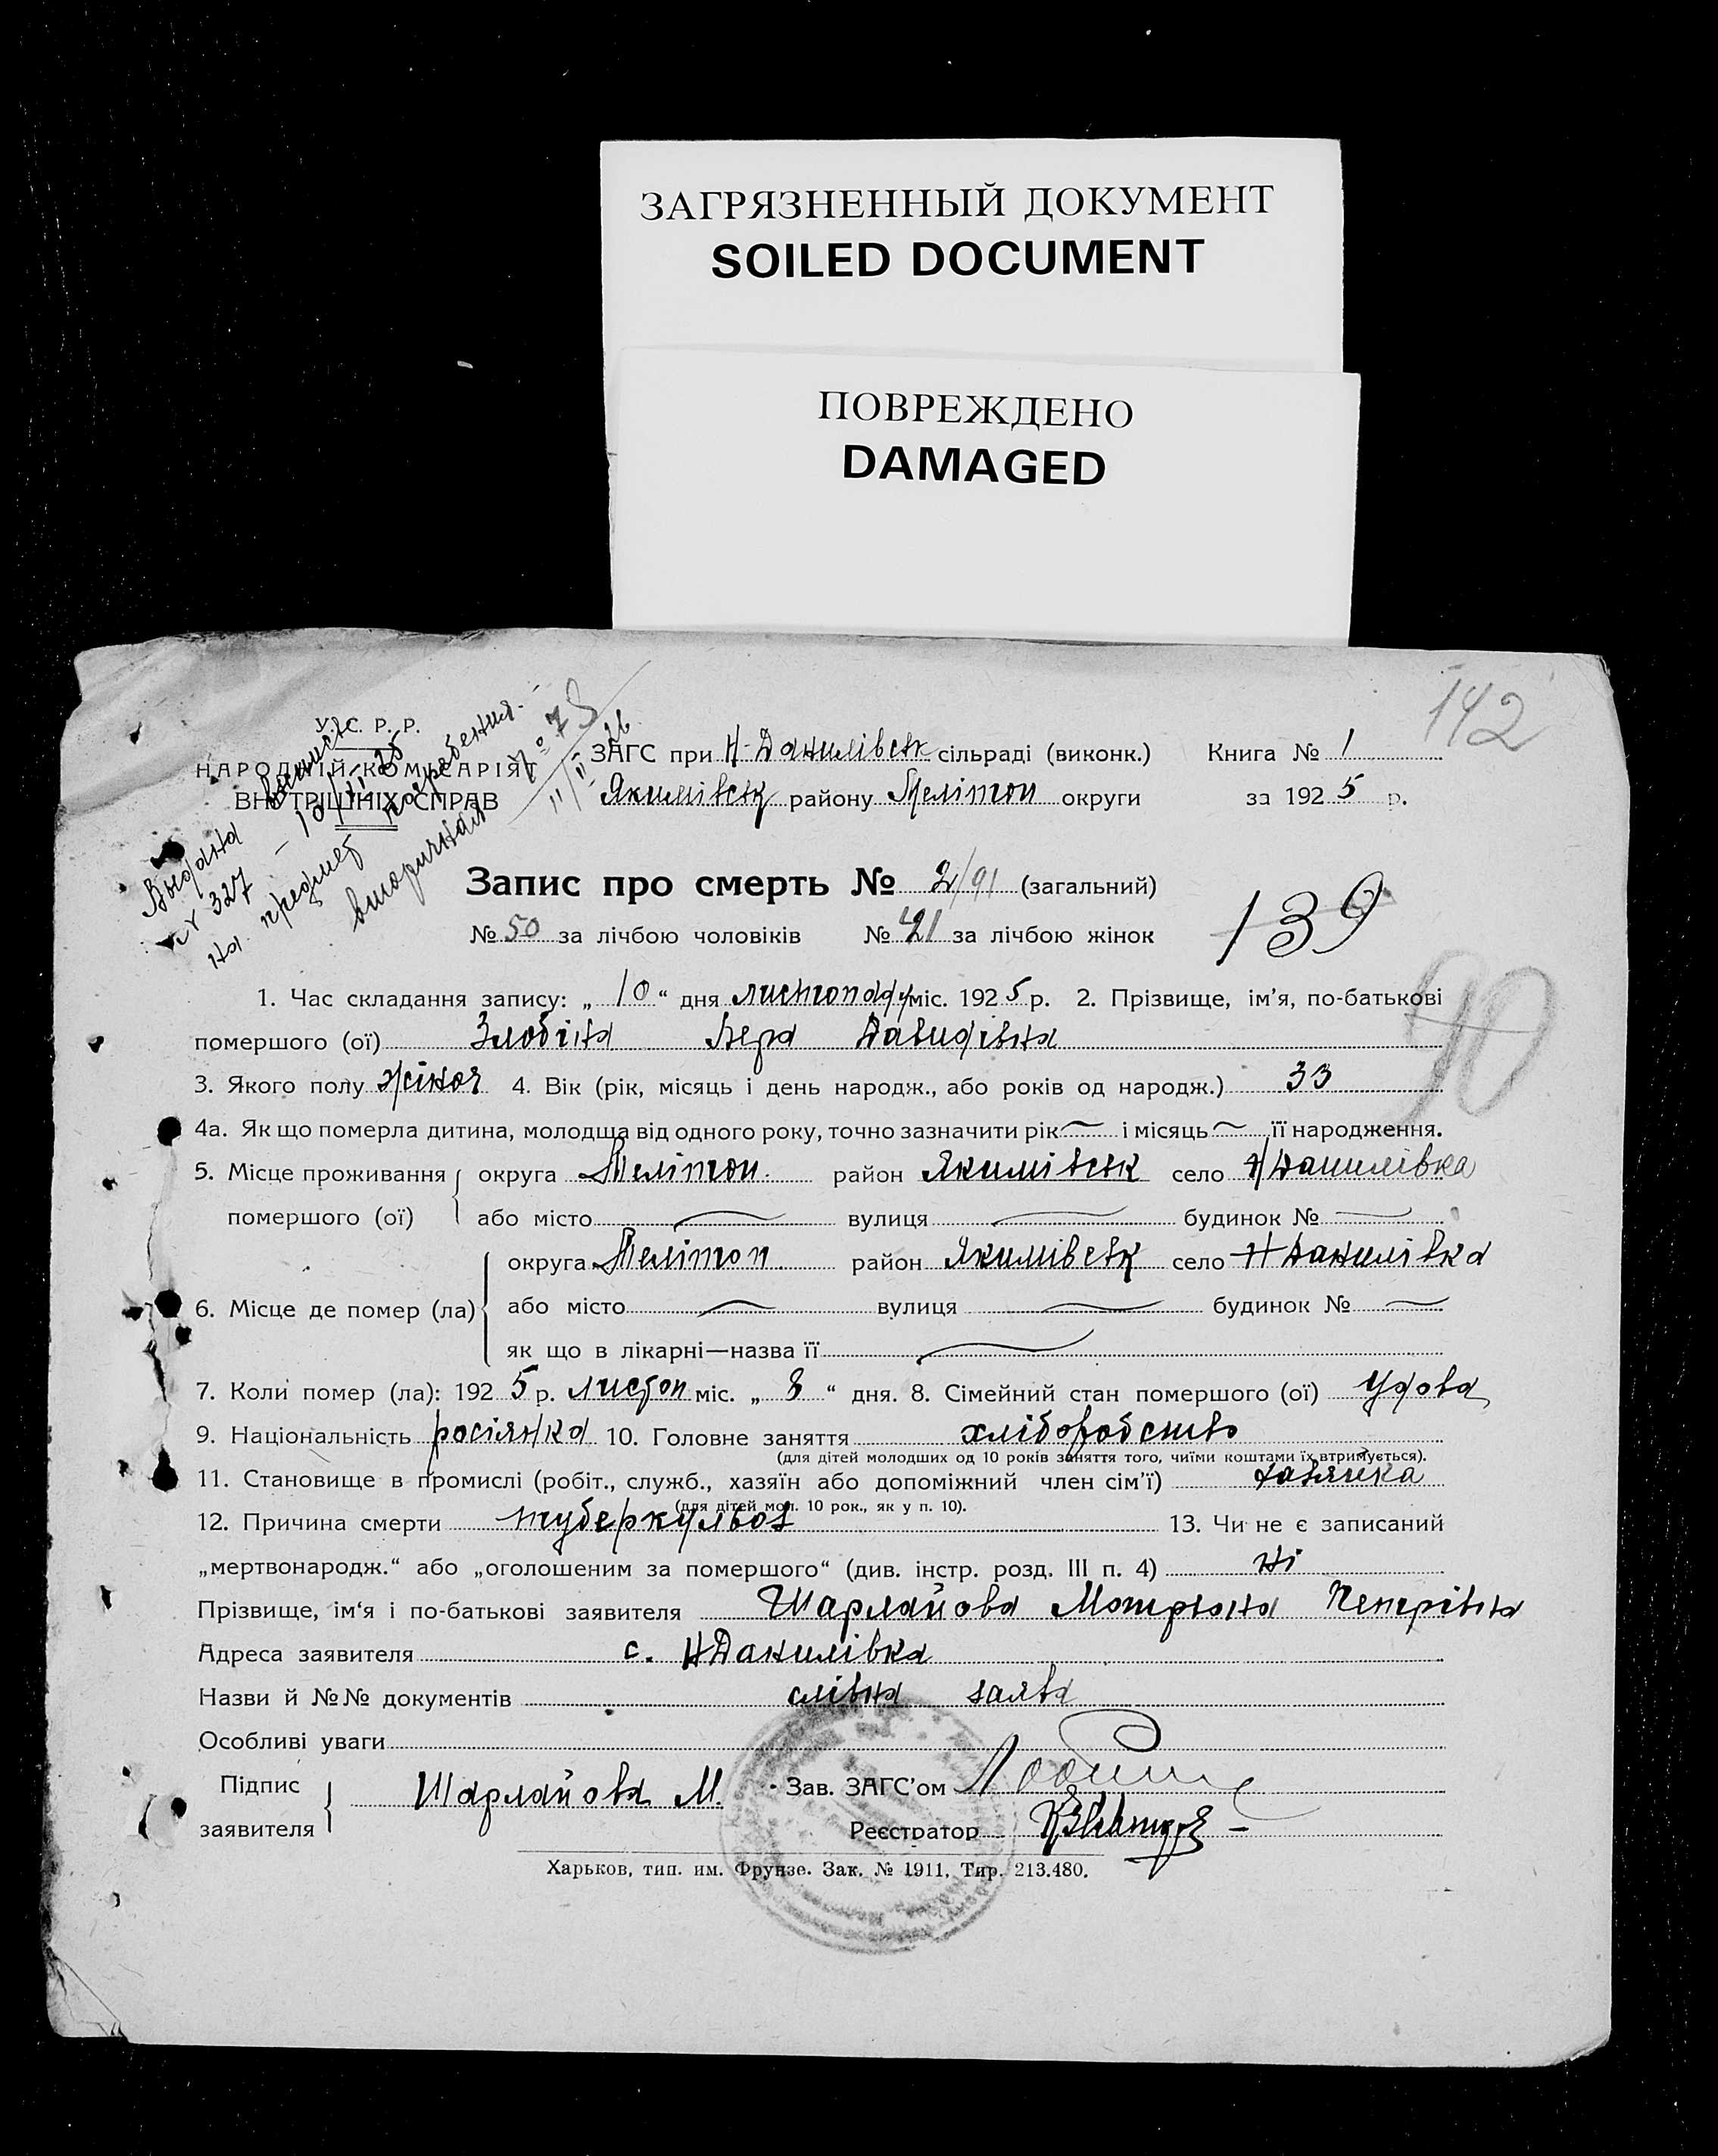 ЗАГРЯЗНЕННЫЙ ДОКУМЕНТ
SOILED DOCUMENT
ПОВРЕЖДЕНО
DAMAGED
142
У. С. Р. Р.
НАРОДНІЙ КОМІСАРІЯТ
ВНУТРІШНІХ СПРАВ
Выдана выпись
№ 327 – 10/XI 25
на предмет погребения
вторичная
№ 73
11/II 26
ЗАГС при Н-Данилівськ сільраді (виконк.) Книга № 1
Якимівськ району Мелітоп округи за 1925 р.
Запис про смерть № 2/91 (загальний)
№ 50 за лічбою чоловіків № 41 за лічбою жінок
139
90
1. Час складання запису: „ 10 “ дня листопаду міс. 1925 р. 2. Прізвище, ім’я, по-батькові
помершого (ої) Злобіна Вера Давидівна
3. Якого полу жіноч 4. Вік (рік, місяць і день народж., або років од народж.) 33
4а. Як що померла дитина, молодща від одного року, точно зазначити рік — і місяць — її народження.
5. Місце проживання помершого (ої) округа Мелітоп. район Якимівськ село Н Данилівка
або місто — вулиця — будинок № —
6. Місце де помер (ла) округа Мелітоп. район Якимівськ село Н Данилівка
або місто — вулиця — будинок № —
як що в лікарні—назва її —
7. Коли помер (ла): 1925 р. листоп міс. „ 8 “ дня. 8. Сімейний стан помершого (ої) Удова
9. Національність росіянка 10. Головне заняття хліборобство
(для дітей молодших од 10 років заняття того, чиїми коштами їх втримується).
11. Становище в промислі (робіт., служб., хазяїн або допоміжний член сім’ї) хазяйка
(для дітей мол. 10 рок., як у п. 10).
12. Причина смерти туберкульоз 13. Чи не є записаний
„мертвонародж.“ або „оголошеним за помершого“ (див. інстр. розд. III п. 4) Ні
Прізвище, ім‘я і по-батькові заявителя Шарлайова Мотрьона Петрівна
Адреса заявителя с. Н Данилівка
Назви й №№ документів слівна заява
Особливі уваги
Підпис заявителя Шарлайова М. Зав. ЗАГС’ом
Реєстратор
Харьков, тип. им. Фрунзе. Зак. № 1911. Тир. 213.480.